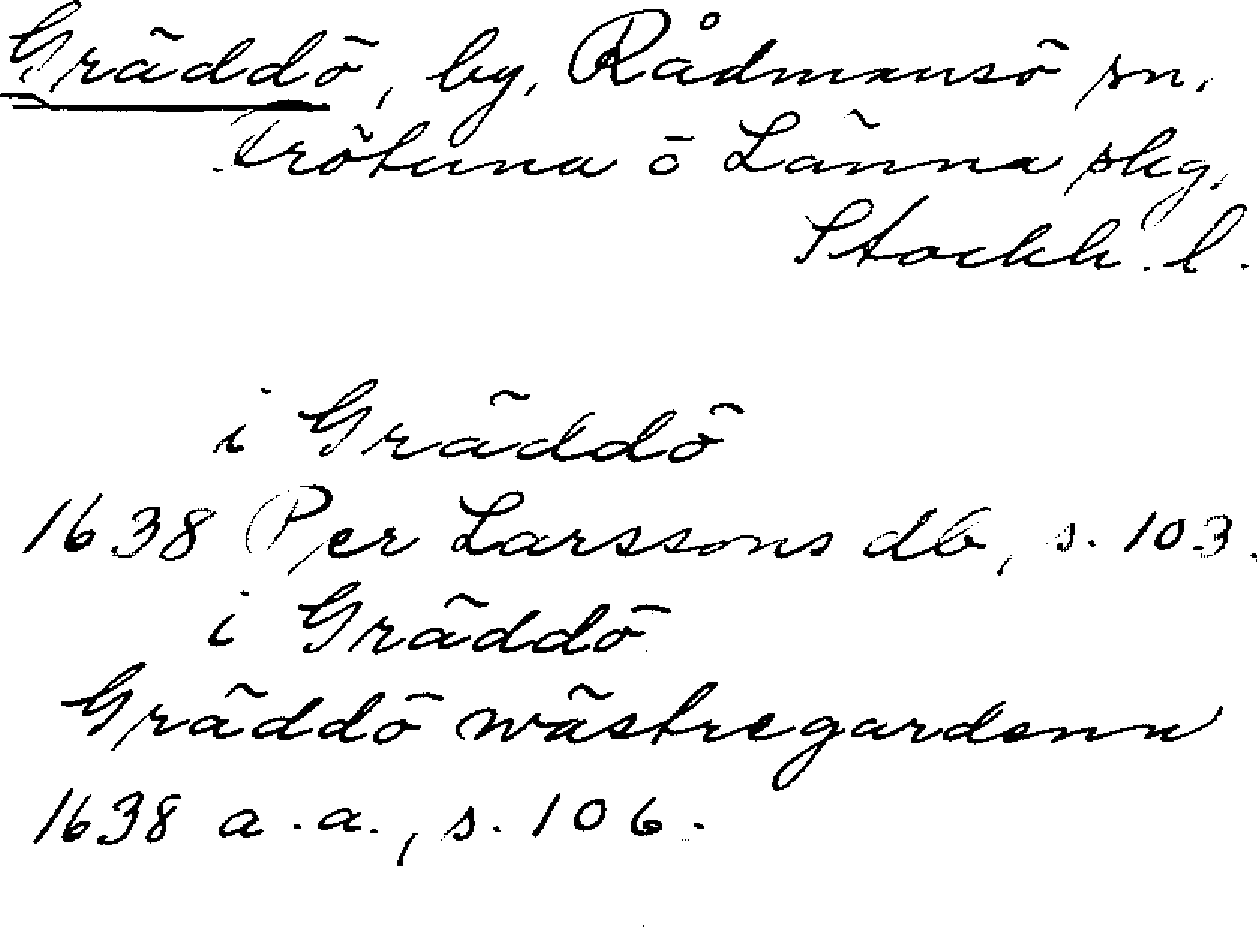 Gräddö, by, Rådmansö sn.
Frötuna o Länna skg.
Stockh. l.
i Gräddö
1638 Per Larssons db, s. 103.
i Gräddö
Gräddö wästregardenn
1638 a.a., s. 106.